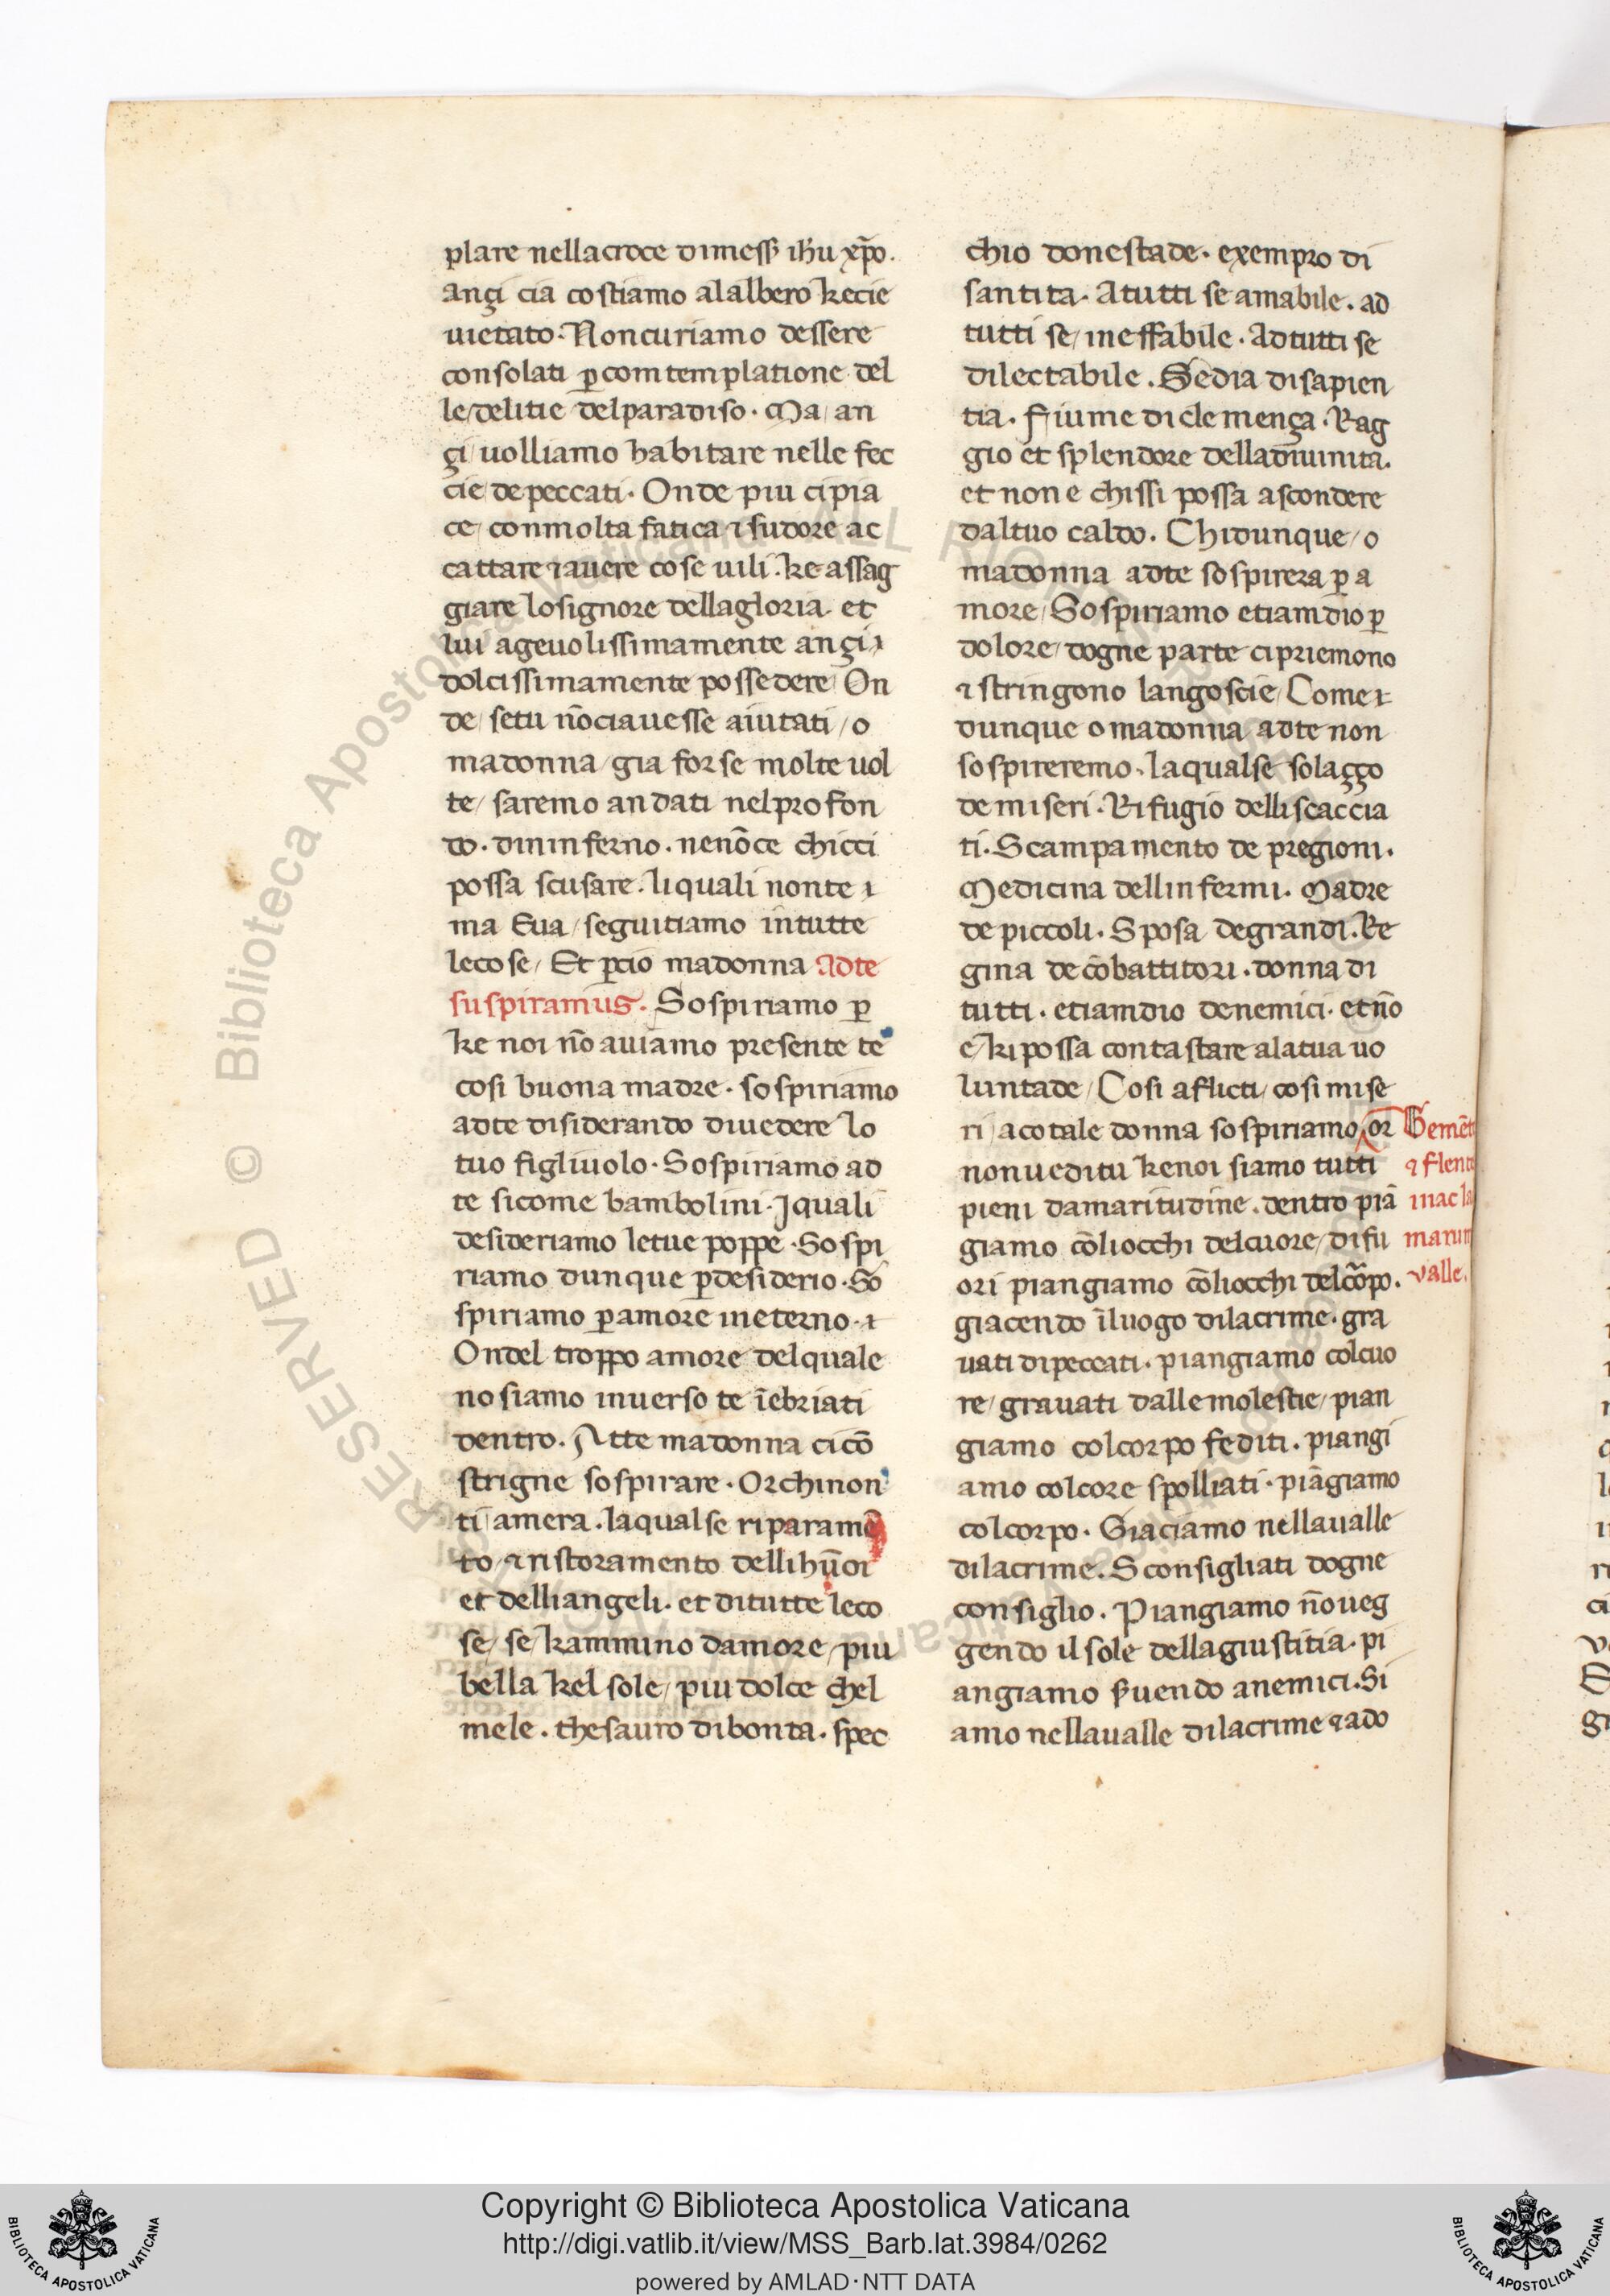 plare nellacroce dimess̃ ihũ xp̃o.
ançi cia costiamo alalbero kecie
uietato. Noncuriamo dessere
consolati ꝑcomtemplatione del
le/delitie delparadiso. Ma an
çi/uolliamo habitare nelle fec
cie/depeccati. Onde piu cipia
ce/conmolta fatica ⁊ sudore ac
cattare ⁊auere cose uili. ke assag
giare losignore dellagloria. et
lui ageuolissimamente ançi ⁊
dolcissimamente possedere/On
de/setu nõciauesse aiutati/o
madonna/gia forse molte uol
te/saremo andati nelprofon
do. dininferno. nenõce chicci
possa scusare. liquali nonte ⁊
ma Eua/seguitiamo intutte
lecose/Et ꝑcio madonna Adte
suspiramus. Sospiriamo ꝑ
ke noi nõ auiamo presente te
cosi buona madre. sospiriamo
adte disiderando diuedere lo
tuo figliuolo. Sospiriamo ad
te sicome bambolini. Iquali
desideriamo letue poppe. Sospi
riamo dunque ꝑdesiderio. So
spiriamo ꝑamore ineterno. ⁊
Ondel troppo amore delquale
nosiamo inuerso te ĩebriati
dentro. Atte madonna cicõ
strigne sospirare. Orchinon
ti amera. laqualse riparamẽ
to ⁊ ristoramento dellihũoi
et delliangeli. et ditutte leco
se/se/kammino damore/piu
bella kel sole/piudolce chel
mele. thesauro dibonta. spec
chio donestade. exempro di
santita. Atutti se amabile. ad
tutti se/ineffabile. Adtutti se
dilectabile. Sedia disapien
tia. Fiume diclemença. Rag
gio et splendore delladiuinita.
et none chissi possa ascondere
daltuo caldo. Chidunque/o
madonna adte sospirera ꝑ a
more/Sospiriamo etiamdio ꝑ
dolore/dogne parte cipriemono
⁊ stringono langoscie/Come ⁊
dunque omadonna adte non
sospireremo. laqualse solaçço
demiseri. Rifugio delliscaccia
ti. Scampamento de pregioni.
Medicina dellinfermi. Madre
depiccoli. Sposa degrandi. Re
gina decõbattitori. donna di
tutti. etiamdio denemici. etnõ
e/kipossa contastare alatua uo
luntade/Cosi aflicti/cosi mise
ri/acotale donna sospiriamo/or
nonueditu kenoi siamo tutti
pieni damaritudine. dentro piã
giamo cõliocchi delcuore/difu
ori piangiamo cõliocchi delcõrpo.
giacendo ĩluogo dilacrime. gra
uati dipeccati. piangiamo colcuo
re/grauati dallemolestie/pian
giamo colcorpo fediti. piangi
amo colcore spolliati. piãgiamo
colcorpo. Giaciamo nellaualle
dilacrime. Sconsigliati dogne
consiglio. Piangiamo nõueg
gendo ilsole dellagiustitia. pi
angiamo ẞuendo anemici. Si
amo nellaualle dilacrime ⁊ado
Gemẽt
⁊ flent
inac la
marum
valle.
Copyright © Biblioteca Apostolica Vaticana
http://digi.vatlib.it/view/MSS_Barb.lat.3984/0262
powered by AMLAD·NTT DATA
BIBLIOTECA APOSTOLICA VATICANA
BIBLIOTECA APOSTOLICA VATICANA